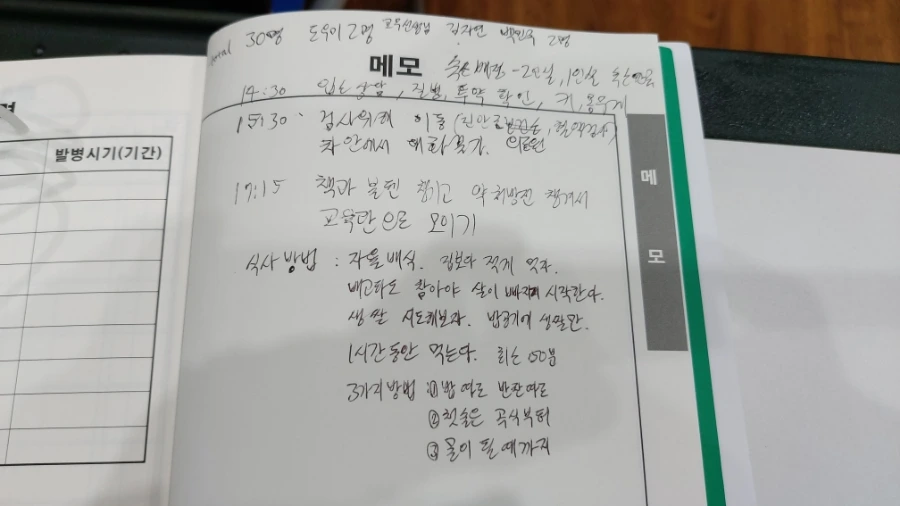 30명 도우미 2명 교무선생님 김자연 백민국 2명
메모
숙소배정 - 2인실, 1인실
14:30 입소상담, 질병, 투약 확인, 키, 몸무게
15:30 검사위해 이동 (진안
차안에서 대화 의료원
17:15 책과 볼펜 챙기고 약처방전 챙겨서
교육관으로 모이기
식사 방법 : 자율배식. 집보다 적게 먹자.
배고파도 참아야 살이 빠지기 시작한다.
생쌀 시도해보자. 밥공기에 생쌀만.
1시간동안 먹는다. 최소 50분
3가지방법 ① 밥 따로 반찬따로
② 첫술은 곡식부터
③ 물이 될 때까지
발병시기(기간)
메
모